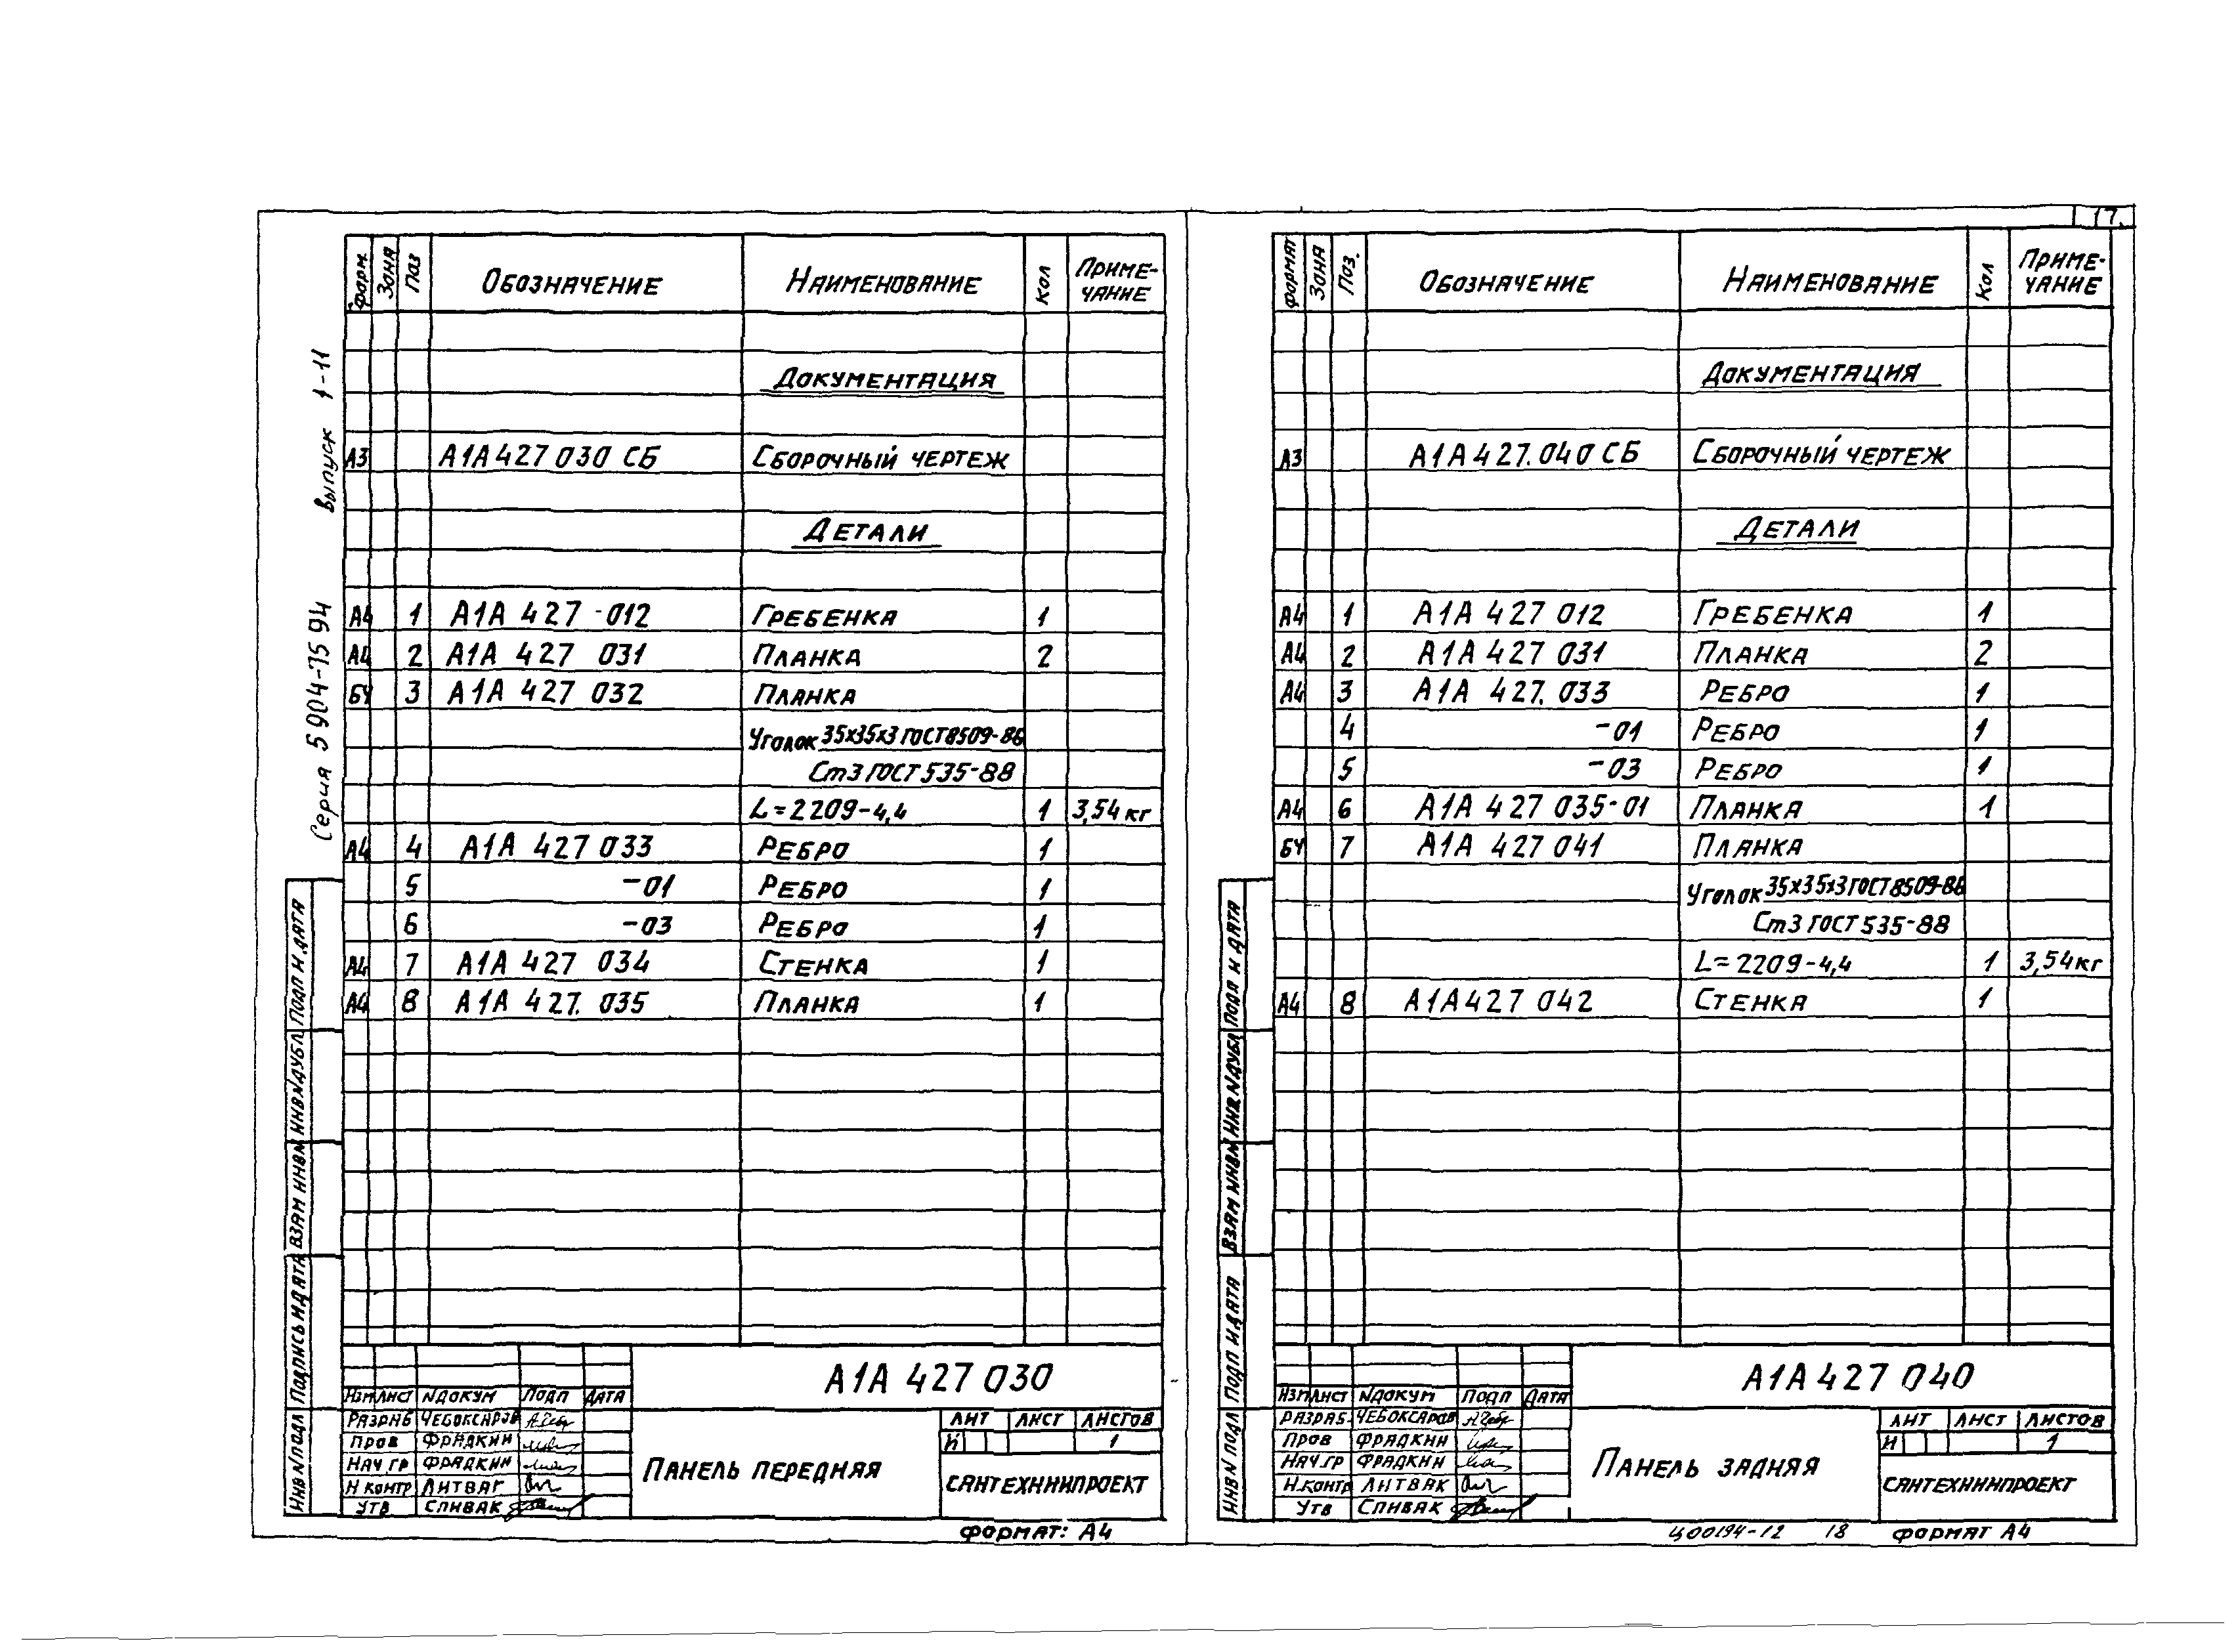 17.
Серия 5 904-75 94 Выпуск 1-11
Форм. Зона Поз Обозначение Наименование Кол Приме-
чание
Документация
А3 А1А427 030 СБ Сборочный чертеж
Детали
А4 1 А1А 427 -012 Гребенка 1
А4 2 А1А 427 031 Планка 2
БЧ 3 А1А 427 032 Планка
Уголок 35х35х3 ГОСТ8509-86
Ст3 ГОСТ 535-88
L=2209-4,4 1 3,54 кг
А4 4 А1А 427 033 Ребро 1
5 -01 Ребро 1
6 -03 Ребро 1
А4 7 А1А 427 034 Стенка 1
А4 8 А1А 427. 035 Планка 1
Инв N подл Подпись и дата Взам инв N Инв N дубл Подп и дата
А1А 427 030
Изм Лист N докум Подп Дата
Разраб Чебоксаров
Пров Фрадкин
Нач.гр Фрадкин
Н контр Литвак
Утв Спивак
Панель передняя
Лит Лист Листов
И 1
Сантехниипроект
Формат: А4
Формат Зона Поз. Обозначение Наименование Кол Приме-
чание
Документация
А3 А1А 427. 040 СБ Сборочный чертеж
Детали
А4 1 А1А 427 012 Гребенка 1
А4 2 А1А 427 031 Планка 2
А4 3 А1А 427. 033 Ребро 1
4 -01 Ребро 1
5 -03 Ребро 1
А4 6 А1А 427 035-01 Планка 1
БЧ 7 А1А 427 041 Планка
Уголок 35х35х3 ГОСТ8509-86
Ст3 ГОСТ 535-88
L=2209-4,4 1 3,54кг
А4 8 А1А427 042 Стенка 1
Инв N подл Подп и дата Взам инв N Инв N дубл Подп и дата
А1А 427 040
Изм Лист N докум Подп Дата
Разраб. Чебоксаров
Пров Фрадкин
Нач.гр Фрадкин
Н.контр Литвак
Утв Спивак
Панель задняя
Лит Лист Листов
И 1
Сантехниипроект
Ц00194-12 18 Формат А4